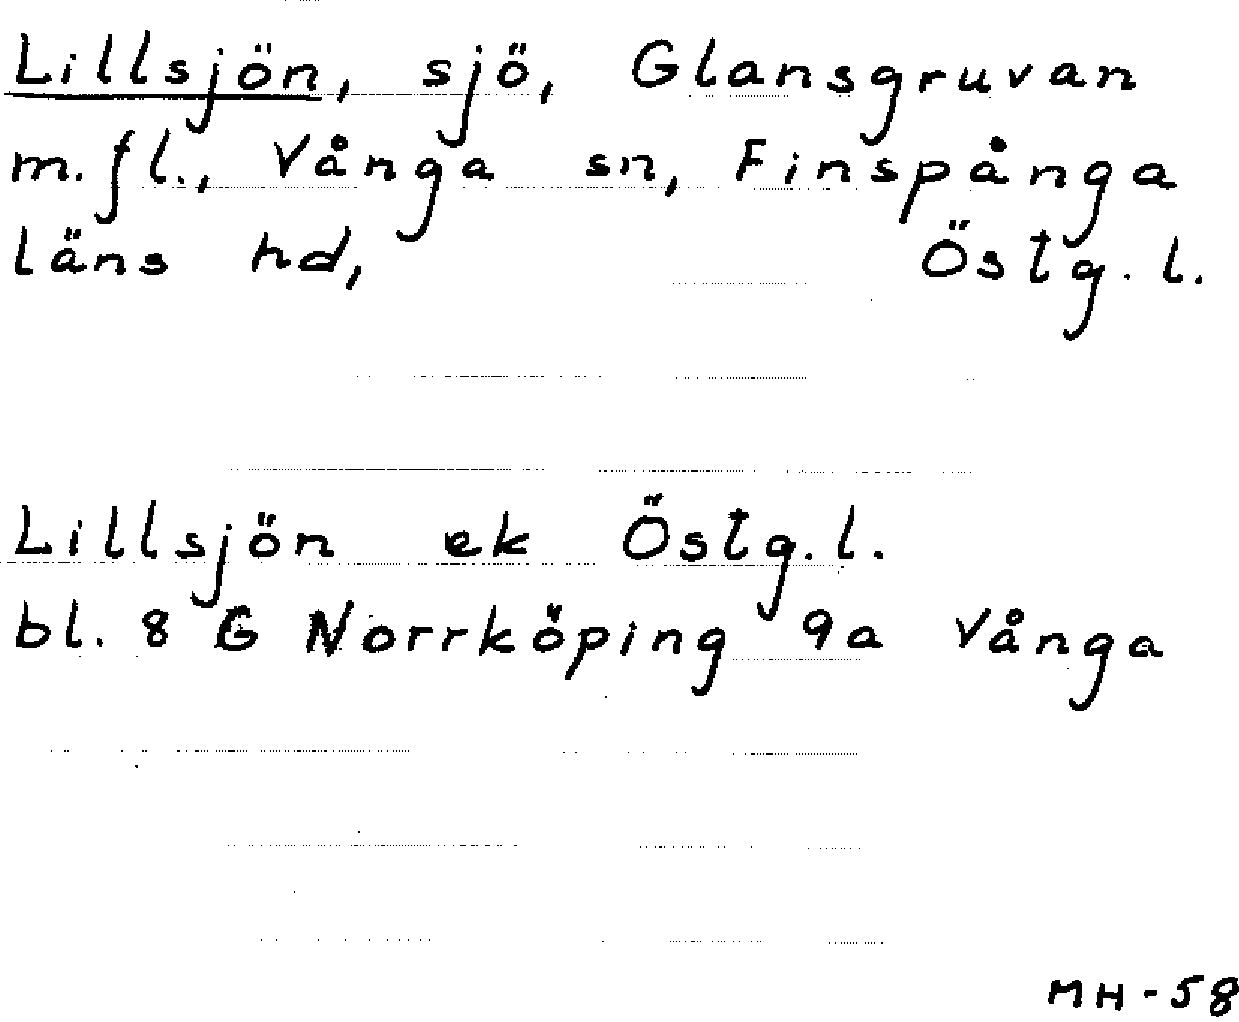 Lillsjön, sjö, Glansgruvan
m.fl., Vånga sn, Finspånga
läns hd, Östg. l.
Lillsjön ek Östg. l.
bl. 8 G Norrköping 9a Vånga
MH-58